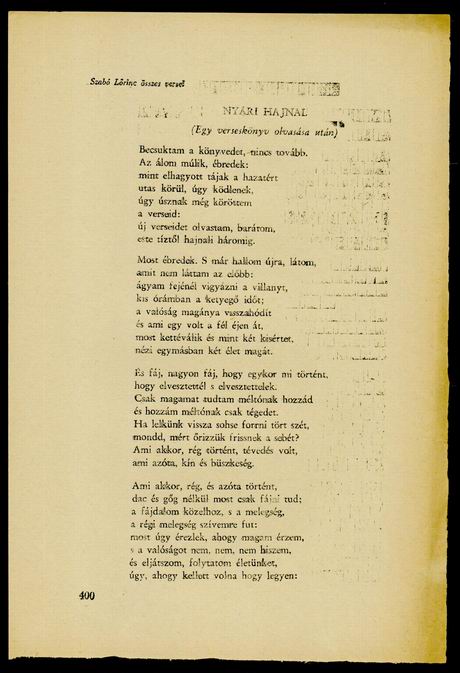 Szabó Lőrinc összes versei
NYÁRI HAJNAL
(Egy verseskönyv olvasása után)
Becsuktam a könyvedet, nincs tovább.
Az álom múlik, ébredek:
mint elhagyott tájak a hazatért
utas körül, úgy ködlenek,
úgy úsznak még köröttem
a verseid:
új verseidet olvastam, barátom,
este tíztől hajnali háromig.
Most ébredek. S már hallom újra, látom,
amit nem láttam az előbb:
ágyam fejénél vigyázni a villanyt,
kis órámban a ketyegő időt;
a valóság magánya visszahódít
és ami egy volt a fél éjen át,
most kettéválik és mint két kisértet,
nézi egymásban két élet magát.
És fáj, nagyon fáj, hogy egykor mi történt,
hogy elvesztettél s elvesztettelek.
Csak magamat tudtam méltónak hozzád
és hozzám méltónak csak tégedet.
Ha lelkünk vissza sohse forrni tört szét,
mondd, mért őrizzük frissnek a sebét?
Ami akkor, rég történt, tévedés volt,
ami azóta, kín és büszkeség.
Ami akkor, rég, és azóta történt,
dac és gőg nélkül most csak fájni tud;
a fájdalom közelhoz, s a melegség,
a régi melegség szívemre fut:
most úgy érezlek, ahogy magam érzem,
s a valóságot nem, nem, nem hiszem,
és eljátszom, folytatom életünket,
úgy, ahogy kellett volna hogy legyen:
400